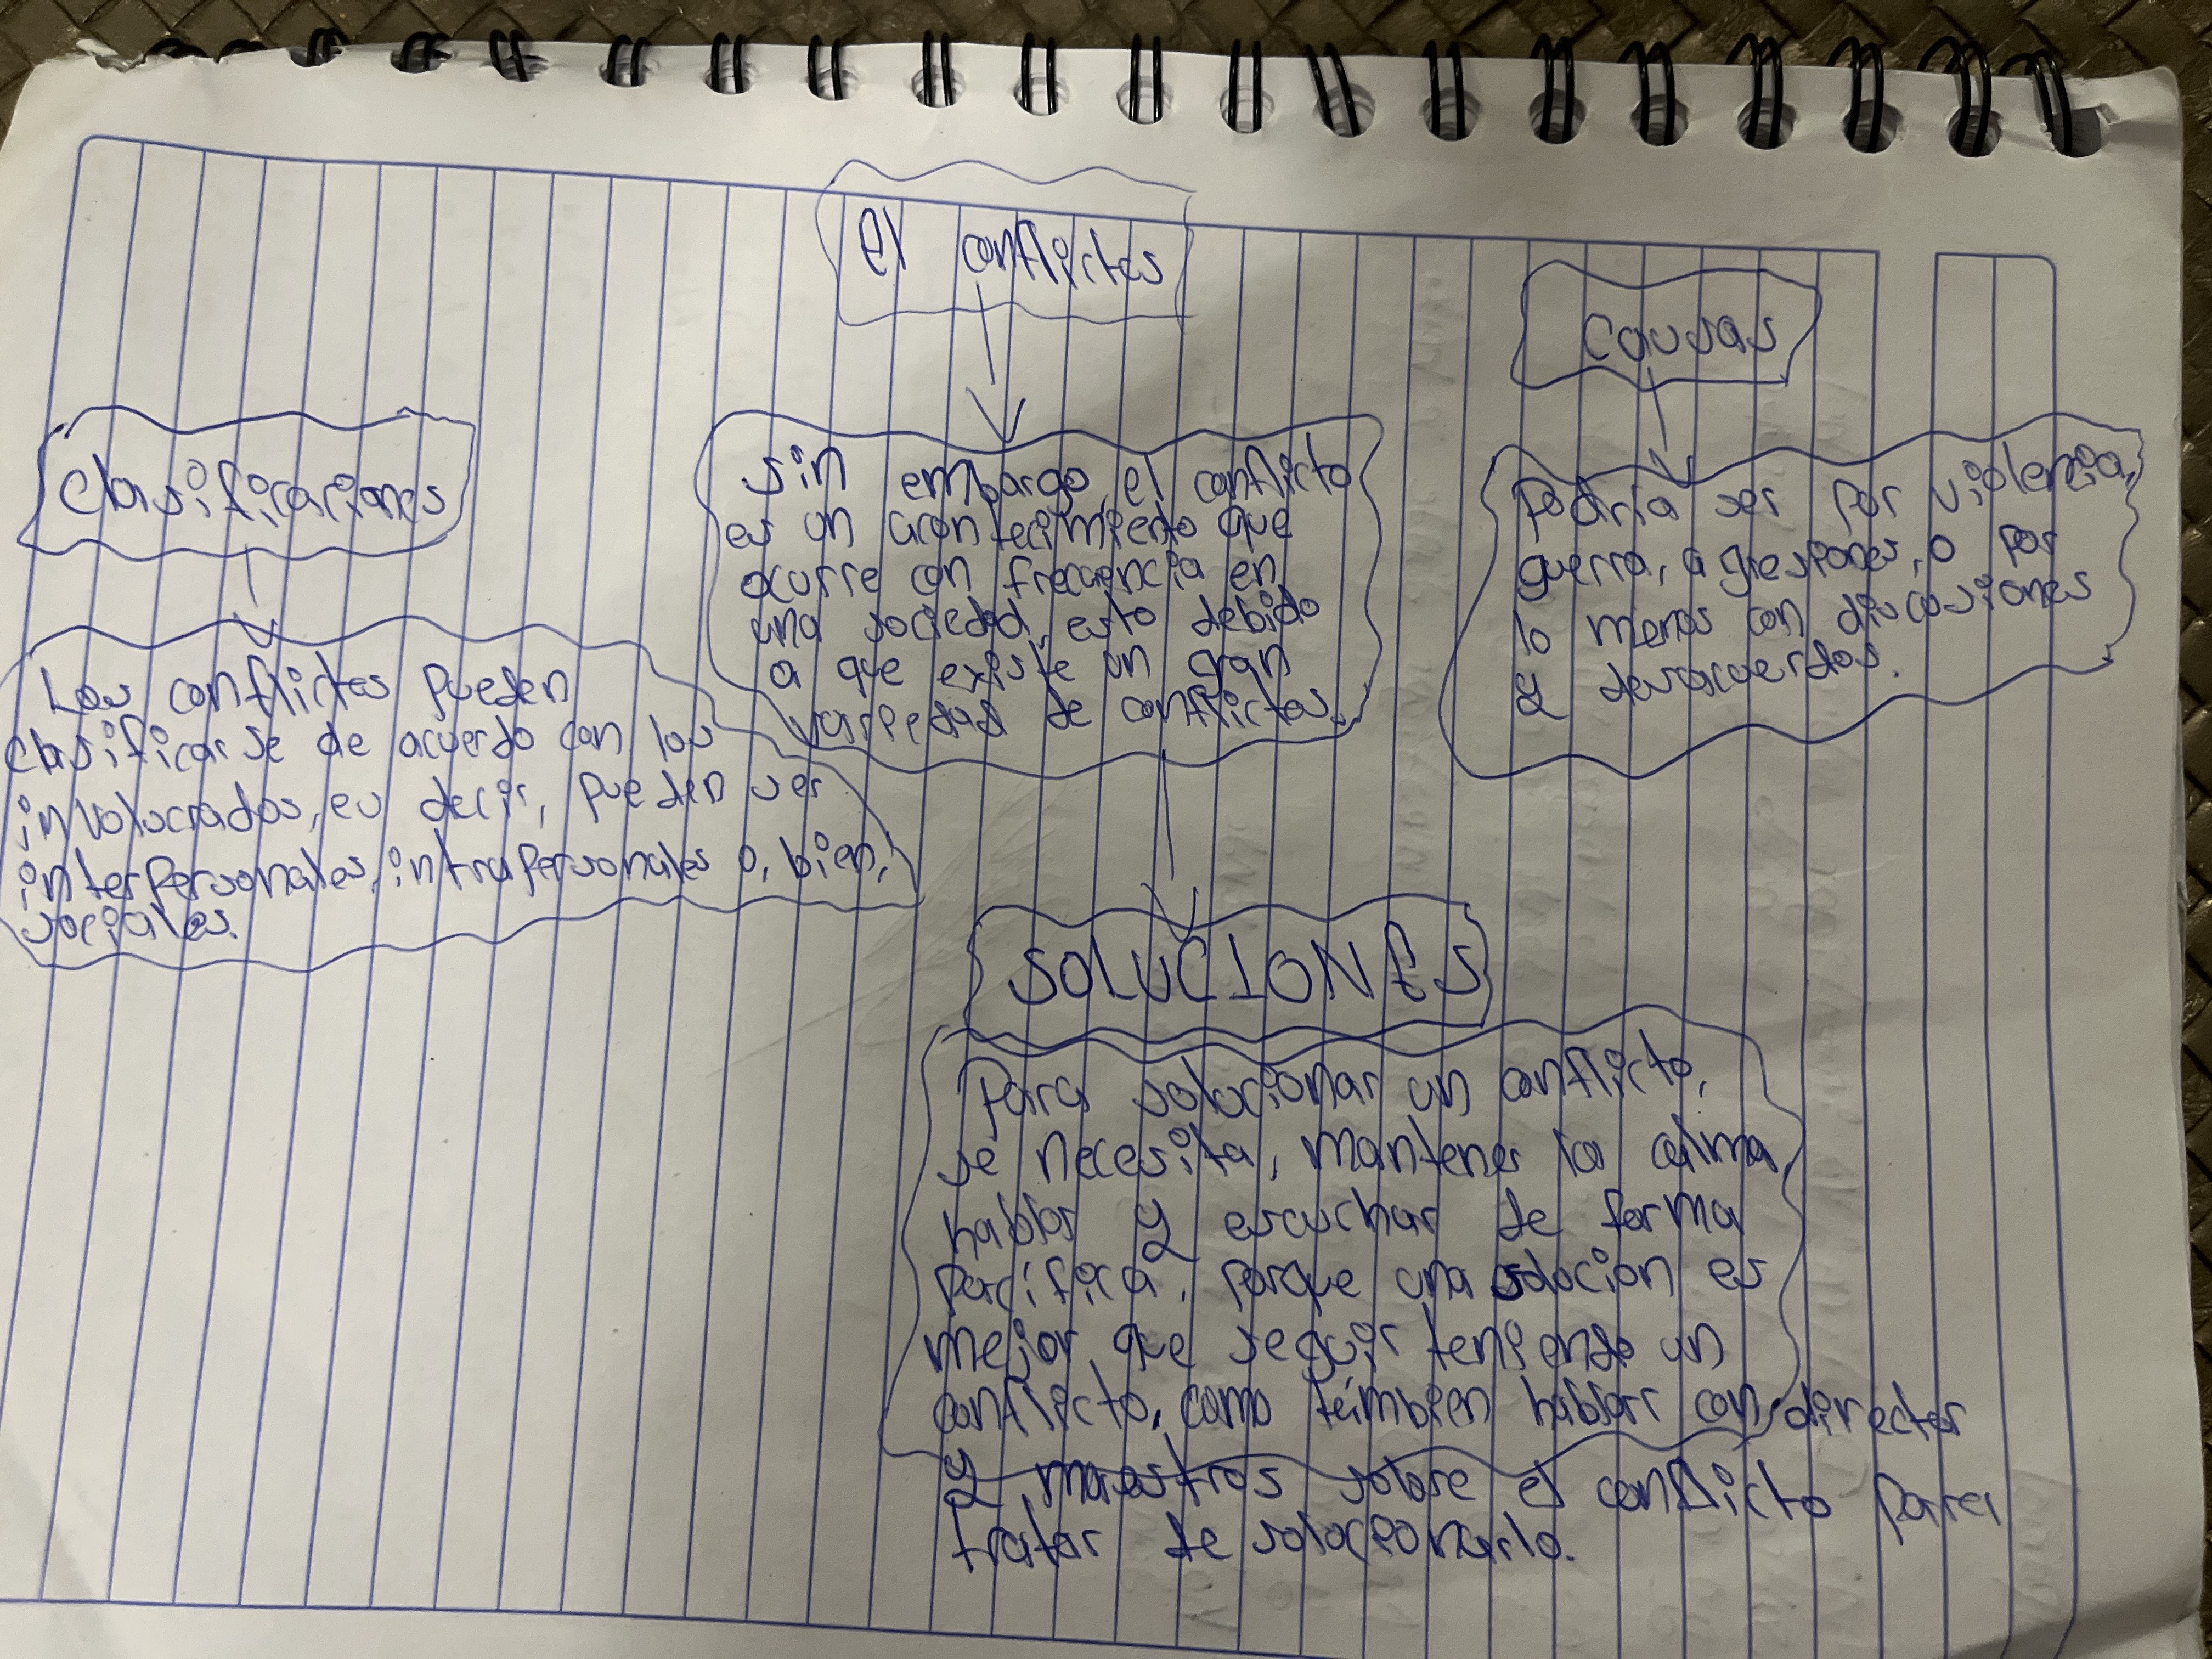 El conflictos
Causas
Clasificaciones
Sin embargo, el conflicto
es un acontecimiento que
ocurre con frecuencia en
una sociedad, esto debido
a que existe un gran
variedad de conflictos.
Podría ser por violencia,
guerra, agresiones, o por
lo menos con discusiones
y desacuerdos.
Los conflictos pueden
clasificarse de acuerdo con los
involucrados, es decir, pueden ser
interpersonales, intrapersonales o, bien,
sociales.
SOLUCIONES
Para solucionar un conflicto,
se necesita, mantener la calma,
hablar y escuchar de forma
pacífica, porque una solucion es
mejor que seguir teniendo un
conflicto, como también hablar con director
y maestros sobre el conflicto para
tratar de solucionarlo.